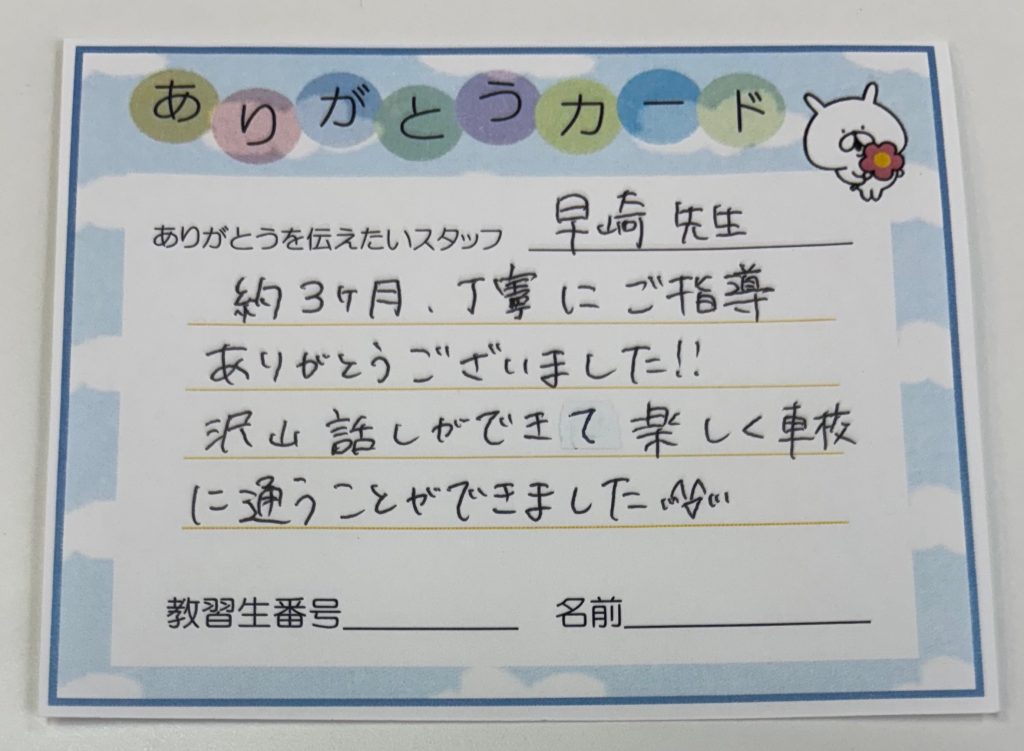 ありがとうカード
ありがとうを伝えたいスタッフ 早崎 先生
約3ヶ月、丁寧にご指導
ありがとうございました!!
沢山 話しができて 楽しく車校
に通うことができました^^
教習生番号
名前